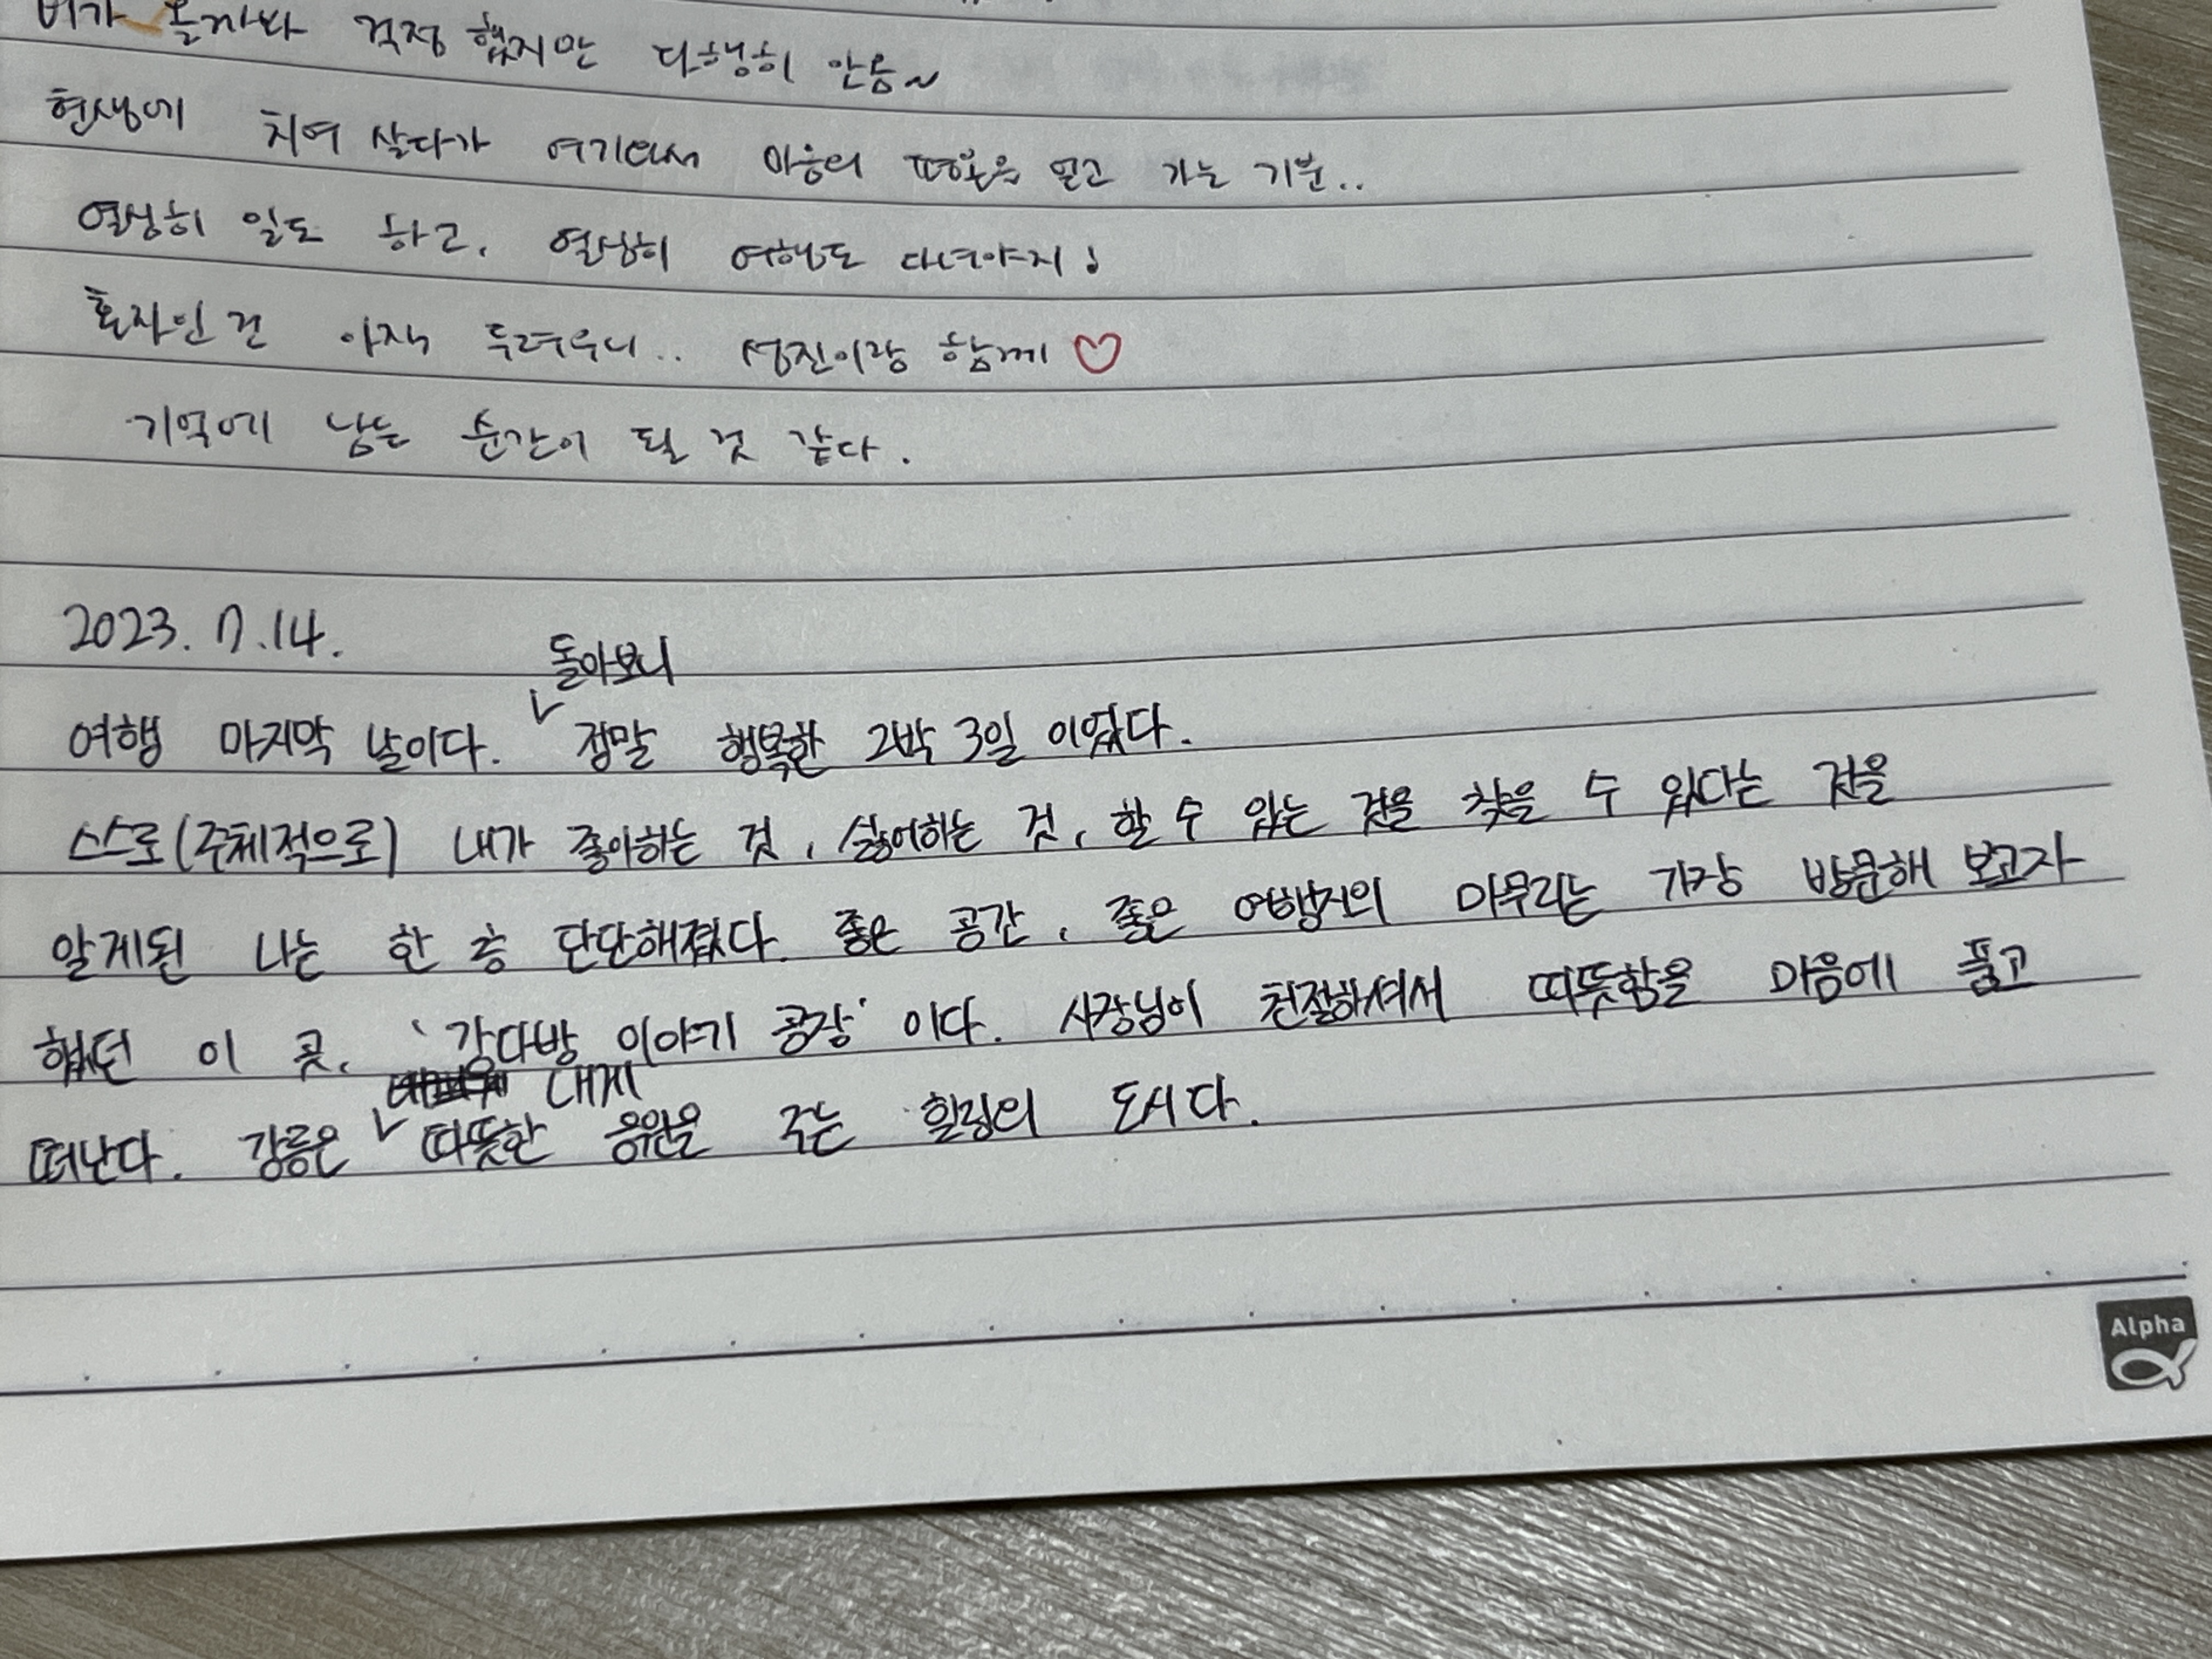 비가 올까봐 걱정 했지만 다행히 안옴~
현생에 치여 살다가 여기와서 마음의 평온을 얻고 가는 기분..
열심히 일도 하고, 열심히 여행도 다녀야지!
혼자인 건 아직 두려우니.. 성진이랑 함께 ♡
기억에 남는 순간이 될 것 같다.
2023. 7. 14.
돌아보니
여행 마지막 날이다. ✓ 정말 행복한 2박 3일 이었다.
스스로(주체적으로) 내가 좋아하는 것, 싫어하는 것, 할 수 있는 것을 찾을 수 있다는 것을
알게된 나는 한 층 단단해졌다. 좋은 공간, 좋은 여행지의 마무리는 가장 방문해 보고자
했던 이 곳, '강다방 이야기 공장' 이다. 사장님이 친절하셔서 따뜻함을 마음에 품고
내게
떠난다. 강릉은 ✓ 따뜻한 응원을 주는 힐링의 도시다.
Alpha